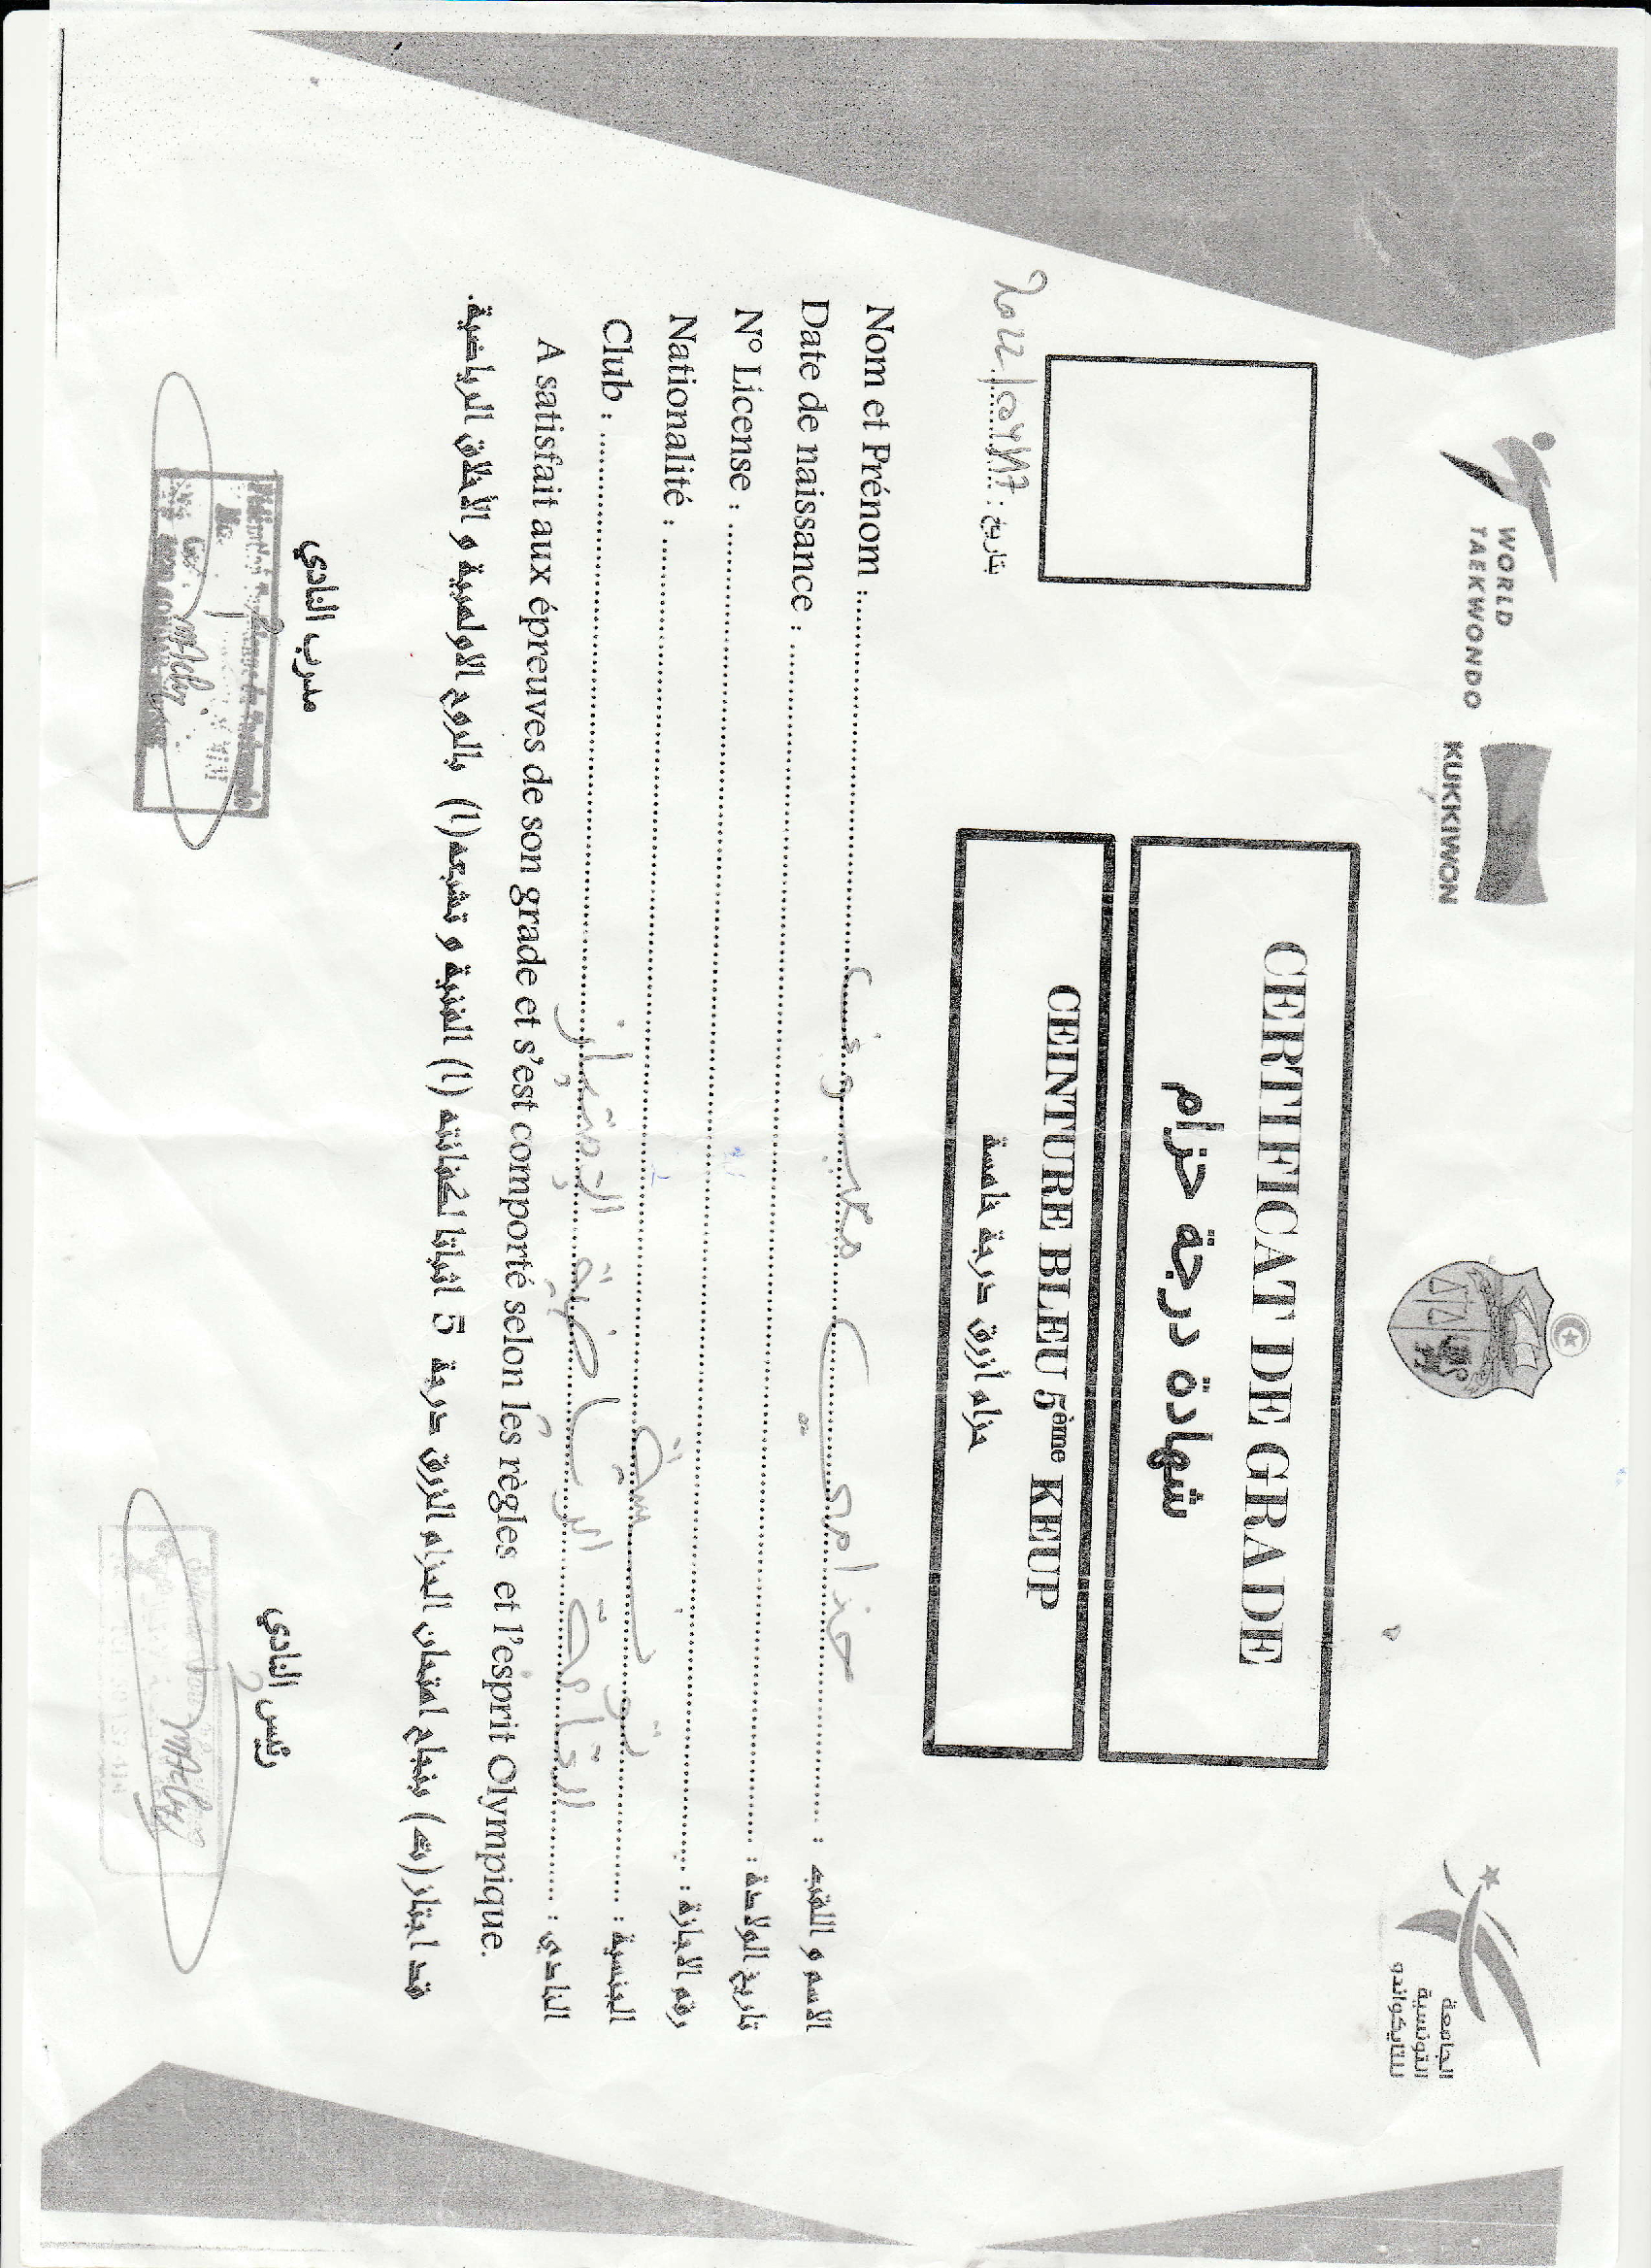 WORLD
TAEKWONDO
KUKKIWON
الجامعة
التونسية
للتايكواندو
CERTIFICAT DE GRADE
شهادة درجة حزام
CEINTURE BLEU 5ème KEUP
حزام أزرق درجة خامسة
بتاريخ :
Nom et Prénom : حذامي : الاسم و اللقب
Date de naissance : : تاريخ الولادة
N° License : : رقم الاجازة
Nationalité : تونسية : الجنسية
Club : الرياضية : النادي
A satisfait aux épreuves de son grade et s'est comporté selon les règles et l'esprit Olympique.
قد اجتاز(ت) بنجاح امتحان الحزام الازرق درجة 5 اثباتا لكفائته (ا) الفنية و تشبعه(ا) بالروح الاولمبية و الأخلاق الرياضية.
مدرب النادي
رئيس النادي